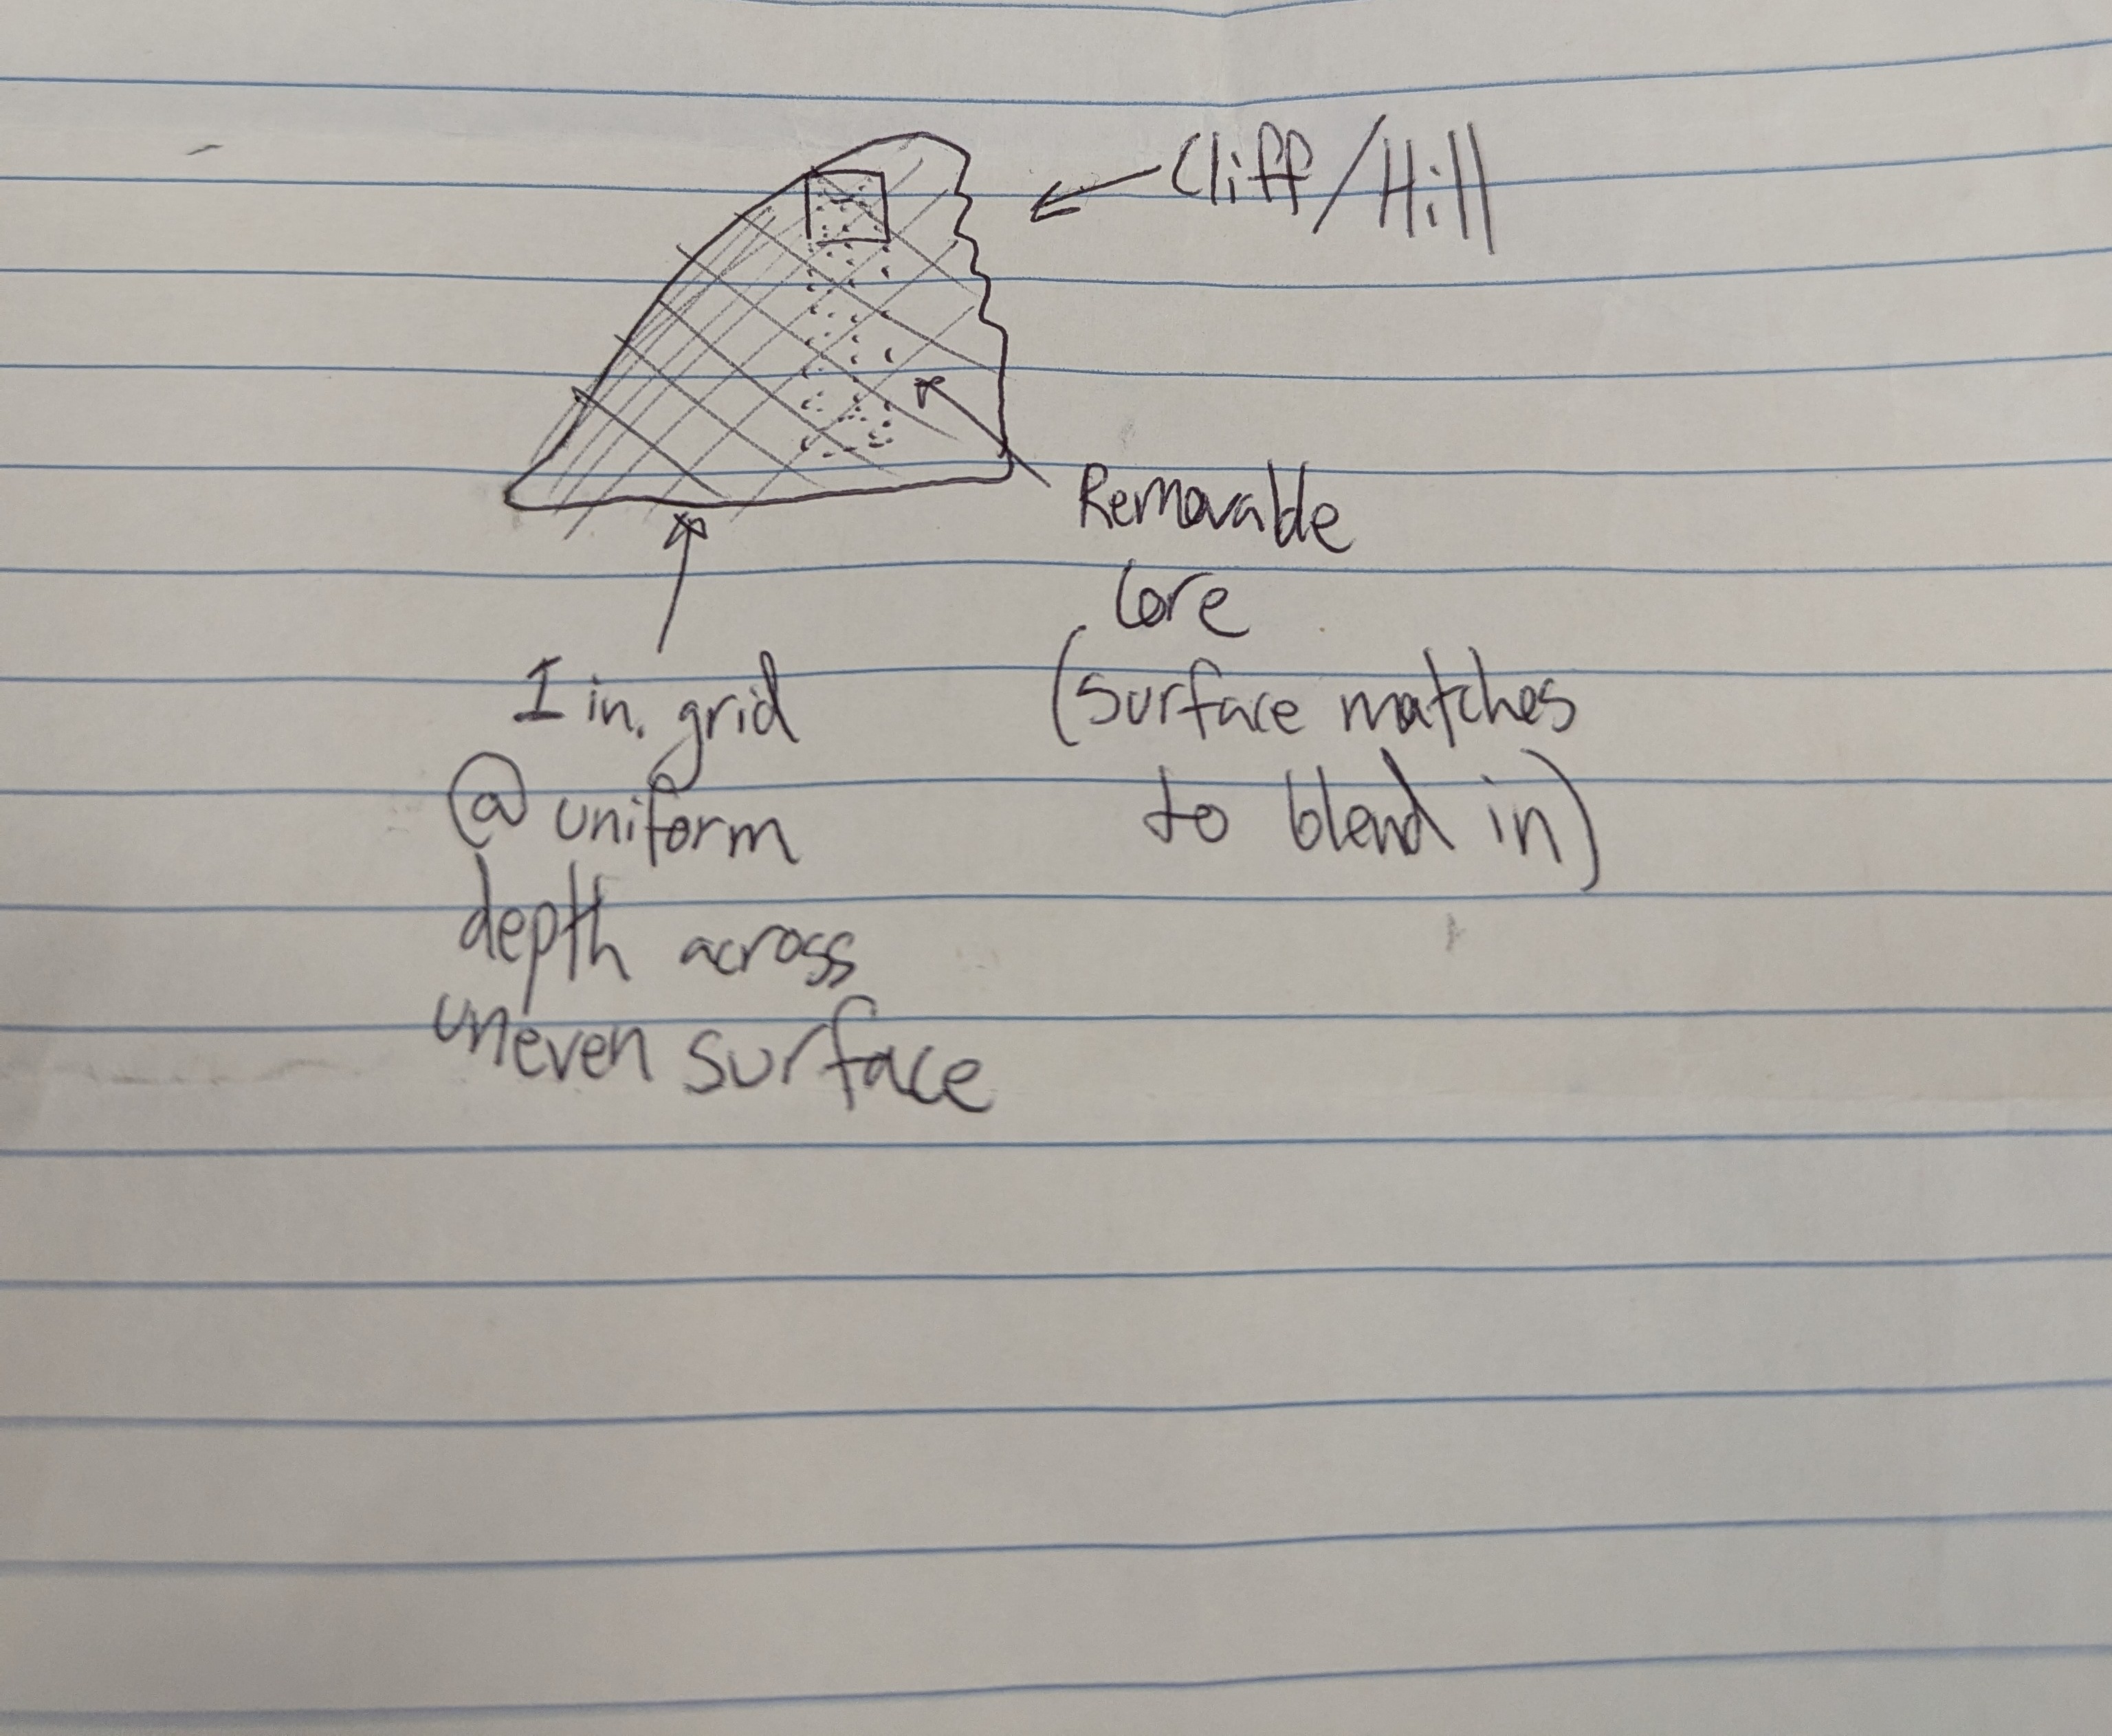 Cliff/Hill
Removable
Core
(surface matches
to blend in)
1 in. grid
@ uniform
depth across
uneven surface